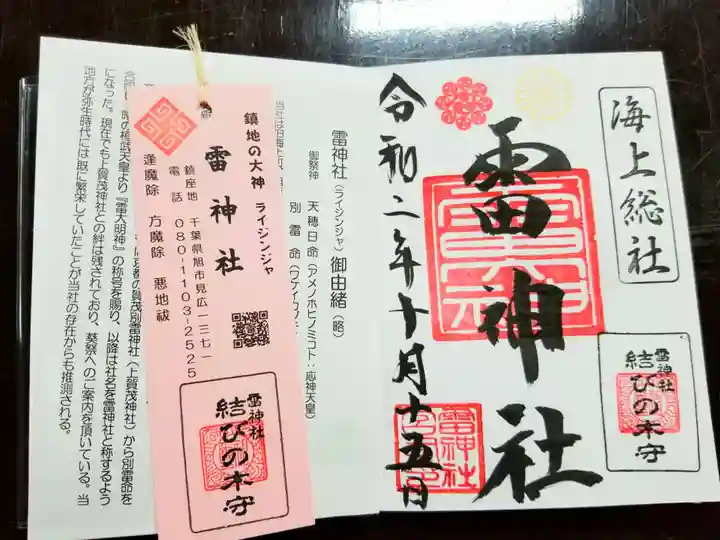 海上総社
雷神社
令和二年十月十五日
雷神社
結びの木守
雷神社
雷神社（ライジンジャ）御由緒（略）
御祭神　天穂日命（アメノホヒノミコト：応神天皇）
別雷命
鎮地の大神　ライジンジャ
雷神社
鎮座地　千葉県旭市見広一三七一
電話　080-1103-2525
逢魔除　方魔除　悪地祓
雷神社
結びの木守
の賀茂別雷神社（上賀茂神社）から別雷命を
桓武天皇より『雷大明神』の称号を賜り、以降は社名を雷神社と称するよう
になった。現在でも上賀茂神社との絆は残されており、葵祭へのご案内を頂いている。当
地方が弥生時代には既に繁栄していたことが当社の存在からも推測される。